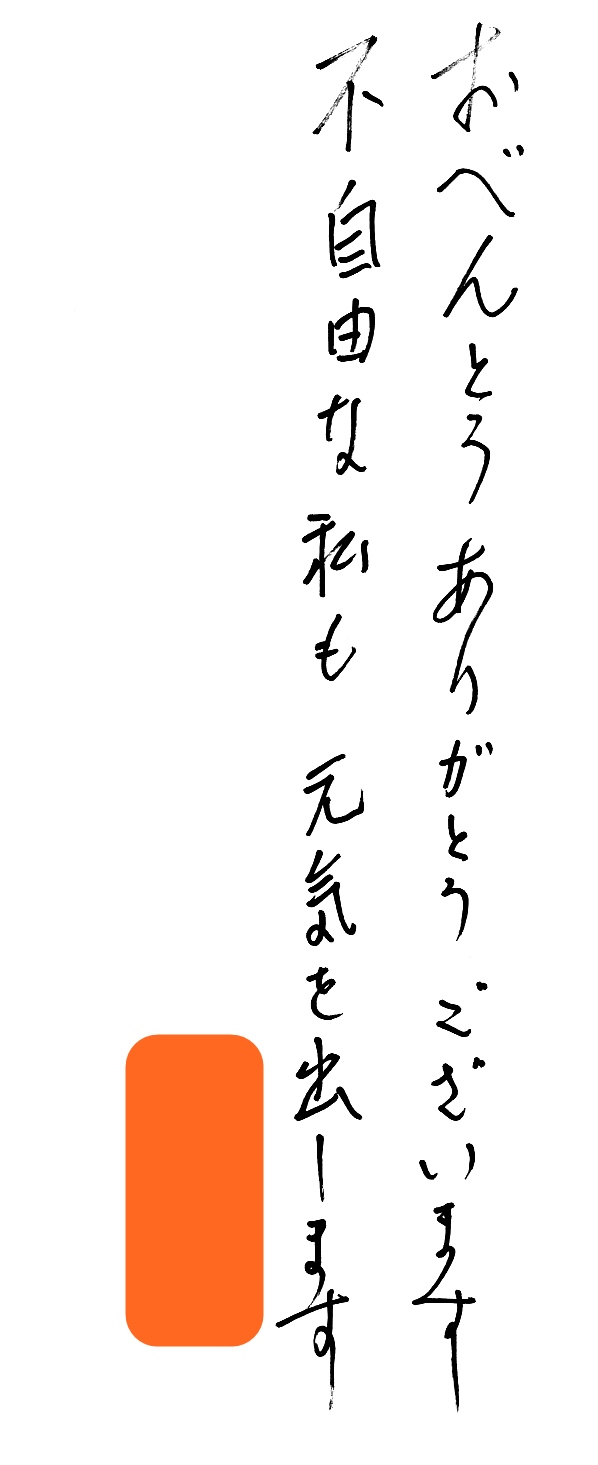 おべんとう ありがとう ございます
不自由な私も 元気を出します